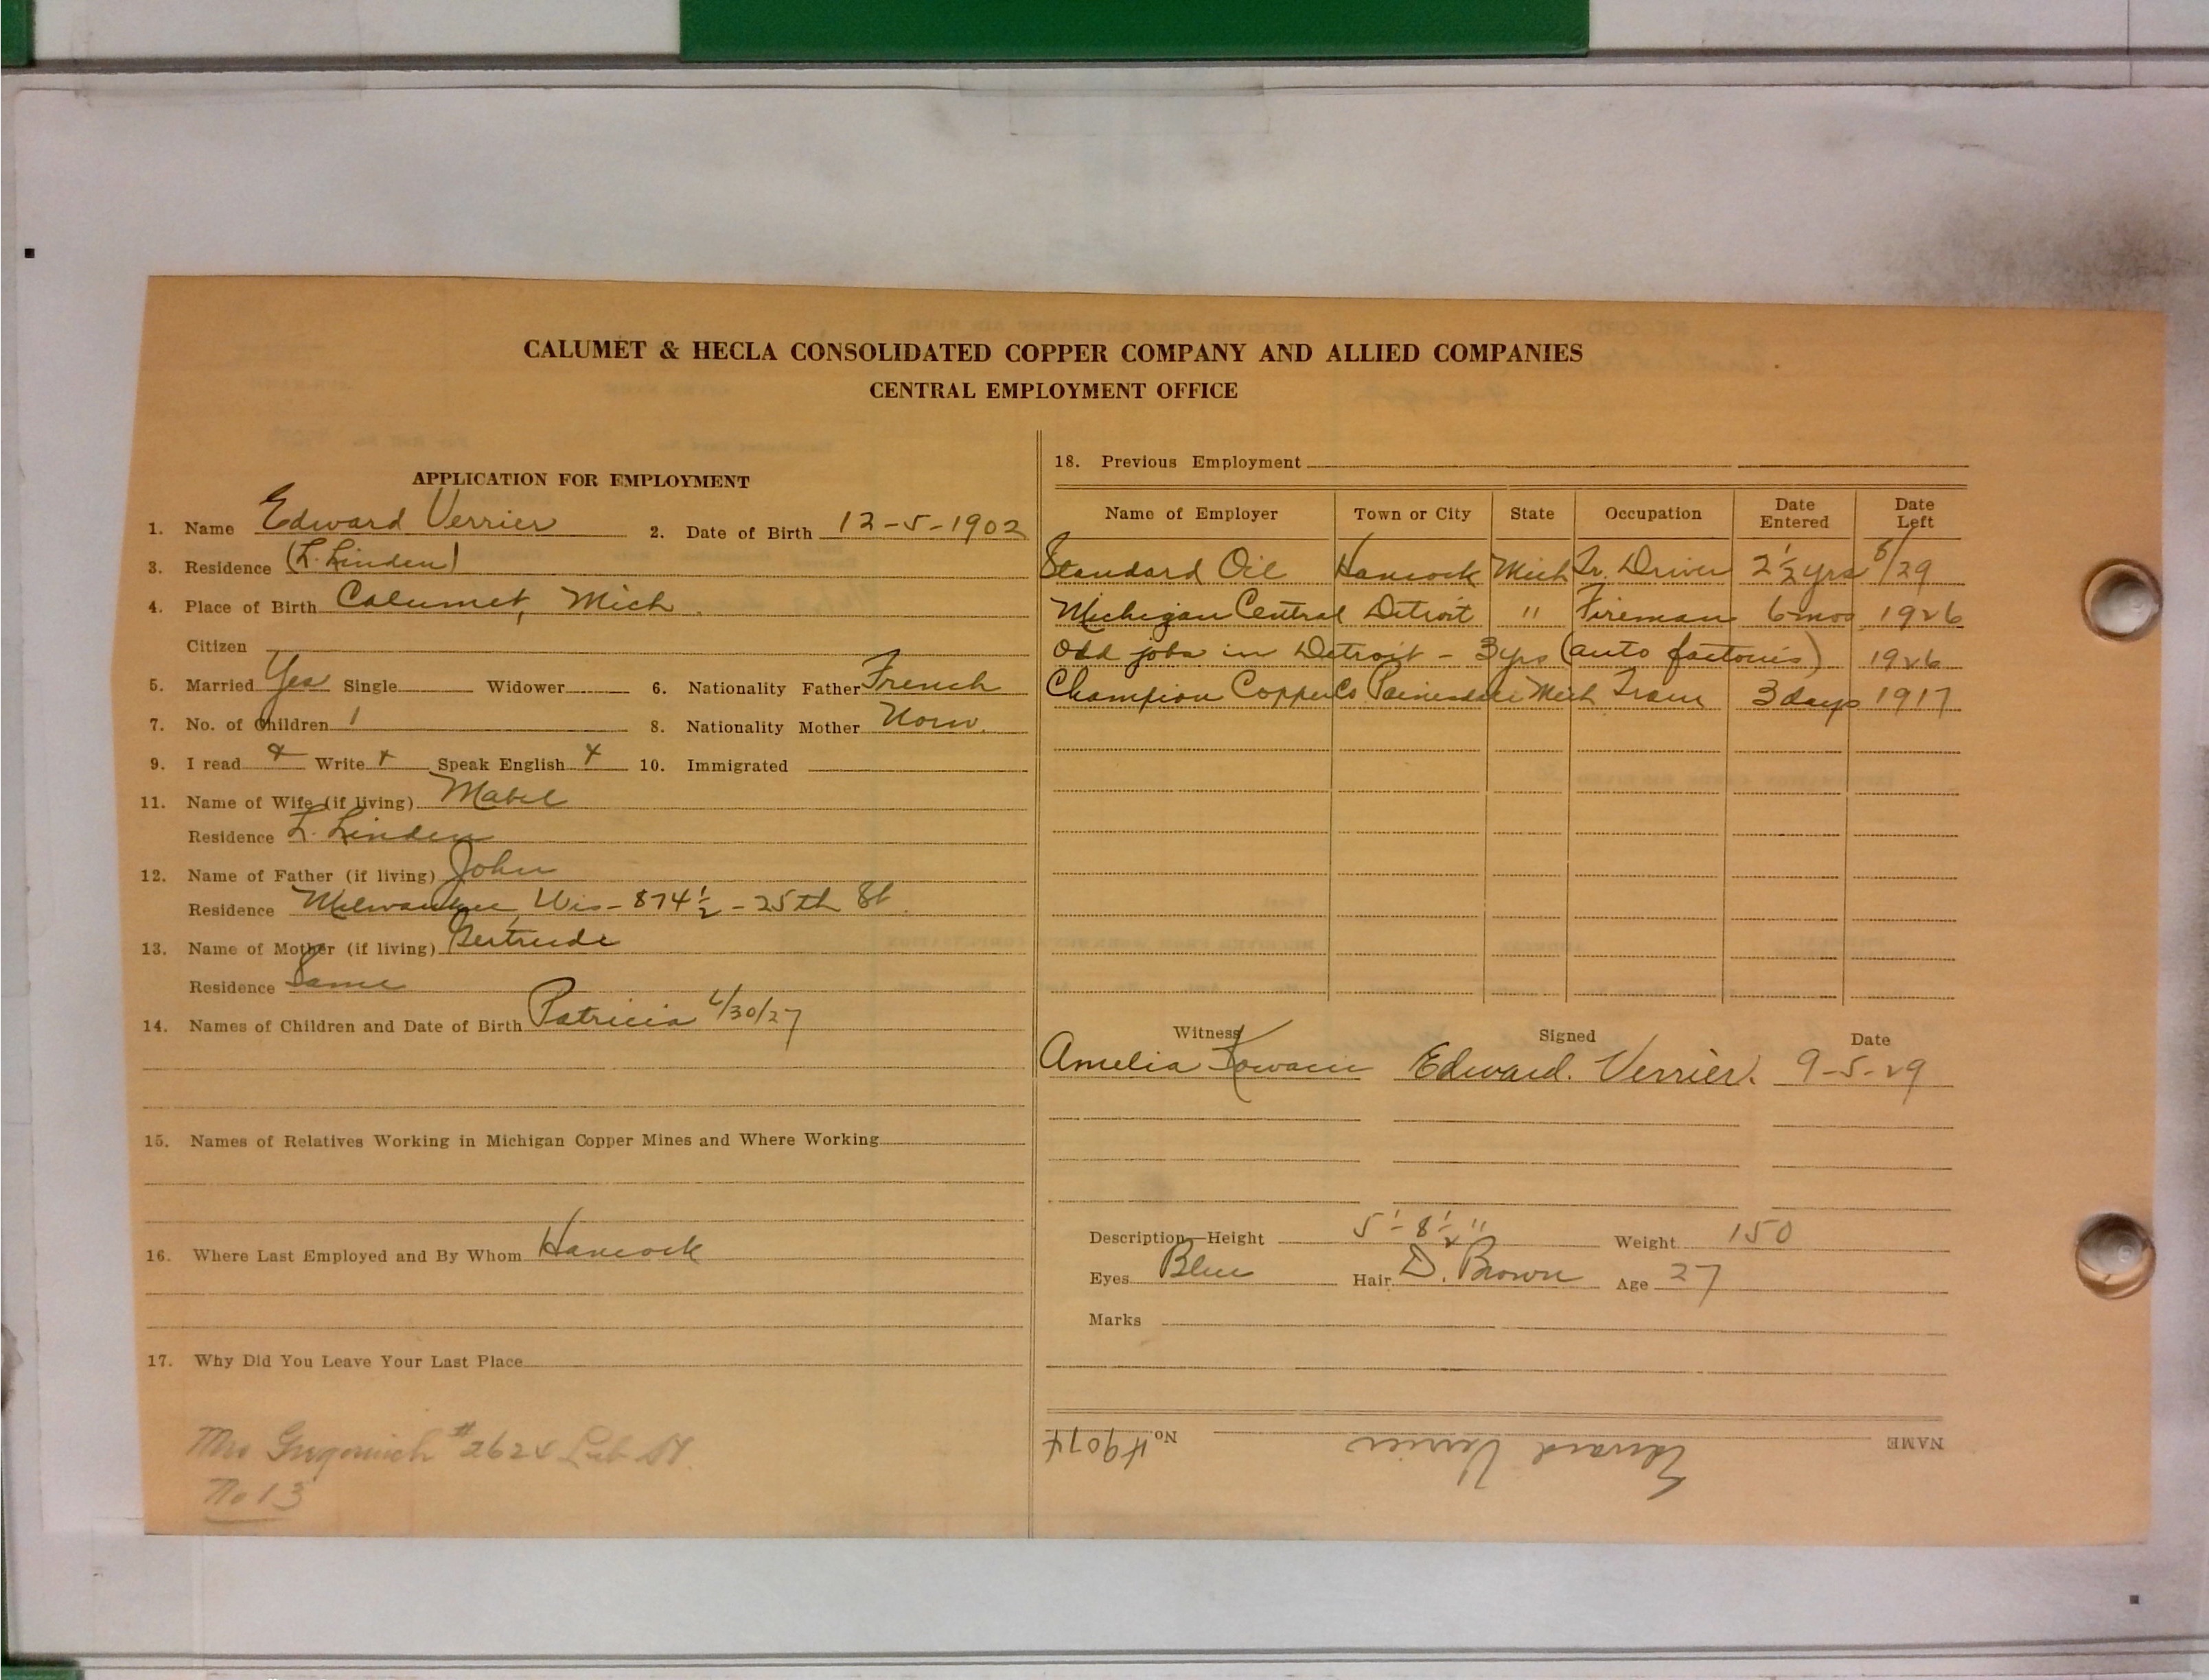 CALUMET & HECLA CONSOLIDATED COPPER COMPANY AND ALLIED COMPANIES
CENTRAL EMPLOYMENT OFFICE
APPLICATION FOR EMPLOYMENT
1. Name Edward Verrier 2. Date of Birth 12-5-1902
3. Residence (L. Linden)
4. Place of Birth Calumet, Mich.
Citizen
5. Married Yes Single Widower 6. Nationality Father French
7. No. of Children 1 8. Nationality Mother Norw.
9. I read Write Speak English 10. Immigrated
11. Name of Wife (if living) Mabel
Residence L. Linden
12. Name of Father (if living) John
Residence Milwaukee, Wis - 874 1/2 - 25th St.
13. Name of Mother (if living) Gertrude
Residence Same
14. Names of Children and Date of Birth Patricia /30/27
15. Names of Relatives Working in Michigan Copper Mines and Where Working
16. Where Last Employed and By Whom Hancock
17. Why Did You Leave Your Last Place
Mrs #2625 St.
No 13
18. Previous Employment
Name of Employer Town or City State Occupation Date Entered Date Left
Standard Oil Hancock Mich Tr. Driver 2 1/2 yrs /29
Michigan Central Detroit " Fireman 6 mos 1926
Odd jobs in Detroit - 3 yrs (auto factories) 1926
Champion Copper Co Painesdale Mich Tram 3 days 1917
Witness Signed Date
Amelia Edward. Verrier. 9-5-29
Description—Height 5'-8 1/2" Weight 150
Eyes Blue Hair D. Brown Age 27
Marks
NAME Edward Verrier No. #9074